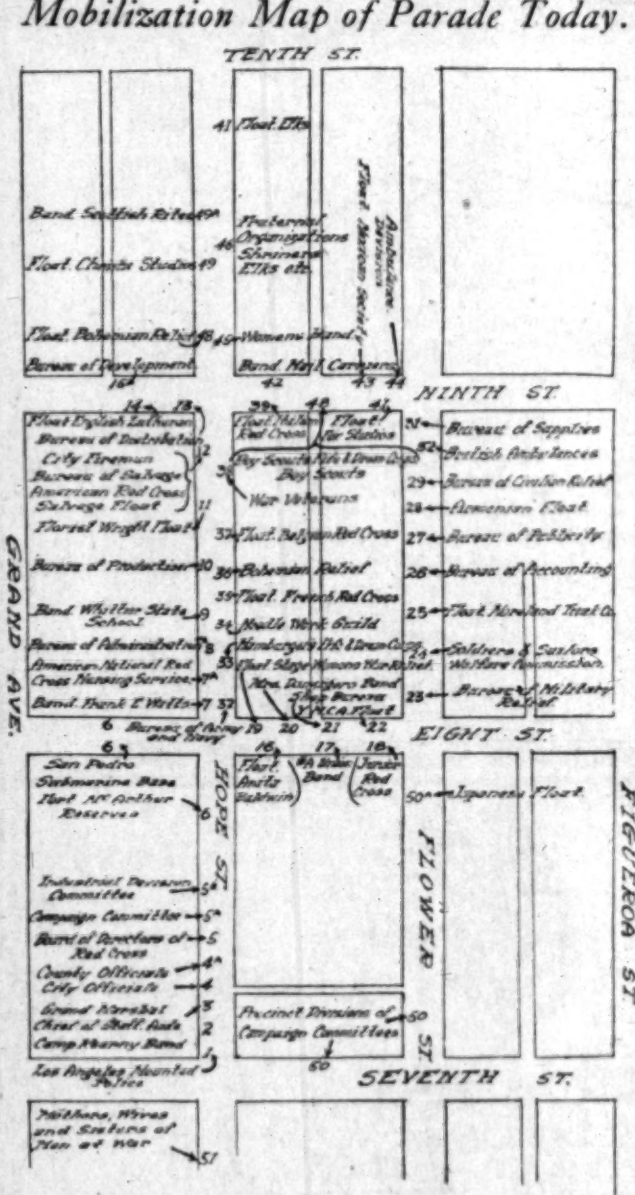 Mobilization Map of Parade Today.
TENTH ST.
41 Float. Elks
Band Scottish Rites 49A
Float. Christie Studios 49
Float. Bohemian Relief 48
Bureau of Development
15A
46 Fraternal
Organizations
Shriners
Elks etc.
45 Womens Band
Band
42
Float Mexican Society
43
Ambulance
Divisions
44
NINTH ST.
14 13
Float English Lutheran
Bureau of Distribution
12
City Fireman
Bureau of Salvage
American Red Cross
Salvage Float
11
Florest Wright Float
Bureau of Production 10
Band Whittier State
School
9
Bureau of Administration 8
American National Red
Cross Nursing Service 7A
Band. Frank E Watts 7
6 Bureau of Army
and Navy
39 40 41
Float
Red Cross
Float
Fox Studios
Boy Scouts Fife & Drum Corps
Boy Scouts
38
War Veterans
37 Float. Belgian Red Cross
36 Bohemian Relief
35 Float. French Red Cross
34 Needle Work Guild
Hamburgers Fife & Drum Corps
33 Float Stage Womens War Relief.
Mrs. Band
Bureau
Y.M.C.A. Float
32
19 20 21 22
31 Bureau of Supplies
32 British Ambulances
29 Bureau of Civilian Relief
28 Armenian Float.
27 Bureau of Publicity
26 Bureau of Accounting
25 Float Moreland Truck Co.
24 Soldiers & Sailors
Welfare Commission.
23 Bureau of Military
Relief.
GRAND AVE.
EIGHT ST.
6
San Pedro
Submarine Base
Fort McArthur
Reserves
6
Industrial Division
Committee
5A
Campaign Committee 5A
Board of Directors of 5
Red Cross
County Officials 4A
City Officials 4
Grand Marshal 3
Chief of Staff. Aids 2
Camp Kearny Band
1
Los Angeles Mounted
Police
HOPE ST.
16 17 18
Float
Anita
Baldwin
Band
Junior
Red
Cross
50A Japanese Float.
FLOWER ST.
FIGUEROA ST.
Precinct Divisions of 50
Campaign Committees
50
SEVENTH ST.
Mothers, Wives
and Sisters of
Men at War
51